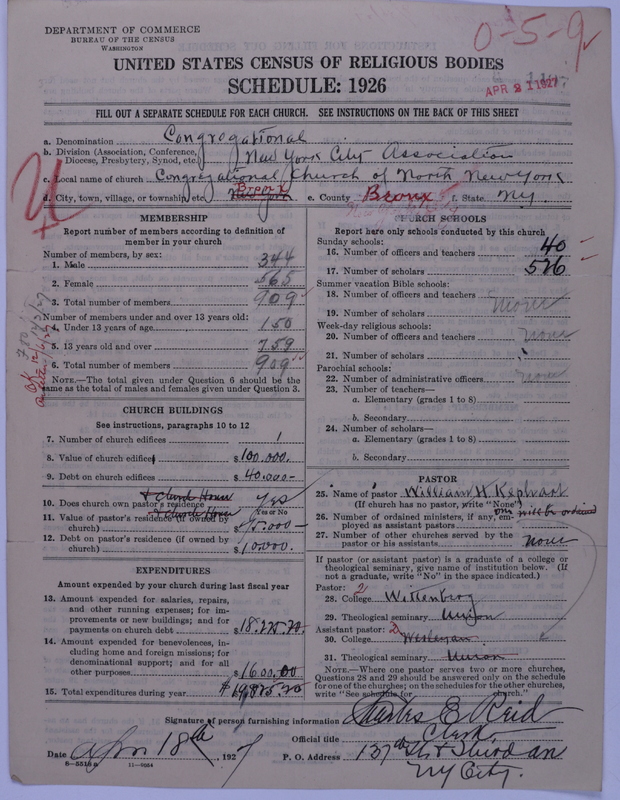 DEPARTMENT OF COMMERCE
BUREAU OF THE CENSUS
WASHINGTON
0-5-9
APR 21 1927
UNITED STATES CENSUS OF RELIGIOUS BODIES
SCHEDULE: 1926
FILL OUT A SEPARATE SCHEDULE FOR EACH CHURCH. SEE INSTRUCTIONS ON THE BACK OF THIS SHEET
a. Denomination Congregational
b. Division (Association, Conference, Diocese, Presbytery, Synod, etc.) New York City Association
c. Local name of church Congregational Church of North New York
d. City, town, village, or township, etc. New York Bronx e. County Bronx f. State N.Y.
MEMBERSHIP
Report number of members according to definition of member in your church
Number of members, by sex:
1. Male 344
2. Female 565
3. Total number of members 909
Number of members under and over 13 years old:
4. Under 13 years of age 150
5. 13 years old and over 759
6. Total number of members 909
NOTE.—The total given under Question 6 should be the same as the total of males and females given under Question 3.
CHURCH BUILDINGS
See instructions, paragraphs 10 to 12
7. Number of church edifices 1
8. Value of church edifices $100,000.
9. Debt on church edifices $40,000-
& Church House
10. Does church own pastor's residence Yes
Yes or No
& Church House
11. Value of pastor's residence (if owned by church) $75,000-
12. Debt on pastor's residence (if owned by church) $10,000.
EXPENDITURES
Amount expended by your church during last fiscal year
13. Amount expended for salaries, repairs, and other running expenses; for improvements or new buildings; and for payments on church debt $18,275.20
14. Amount expended for benevolences, including home and foreign missions; for denominational support; and for all other purposes $1600.00
15. Total expenditures during year $19,875.20
CHURCH SCHOOLS
Report here only schools conducted by this church
Sunday schools:
16. Number of officers and teachers 40
17. Number of scholars 526
Summer vacation Bible schools:
18. Number of officers and teachers none
19. Number of scholars
Week-day religious schools:
20. Number of officers and teachers none
21. Number of scholars
Parochial schools:
22. Number of administrative officers none
23. Number of teachers—
a. Elementary (grades 1 to 8)
b. Secondary
24. Number of scholars—
a. Elementary (grades 1 to 8)
b. Secondary
PASTOR
25. Name of pastor William H Kephart
(If church has no pastor, write "None")
26. Number of ordained ministers, if any, employed as assistant pastors one will be ordained
27. Number of other churches served by the pastor or his assistants none
If pastor (or assistant pastor) is a graduate of a college or theological seminary, give name of institution below. (If not a graduate, write "No" in the space indicated.)
Pastor: 2
28. College Wittenberg
29. Theological seminary Union
Assistant pastor: 2
30. College Wesleyan
31. Theological seminary Union
NOTE.—Where one pastor serves two or more churches, Questions 28 and 29 should be answered only on the schedule for one of the churches; on the schedules for the other churches, write "See schedule for ______ church."
Signature of person furnishing information Charles E. Reid
Official title Clerk
Date Apr 18th, 1927 P. O. Address 137th St & Third Av
N Y City.
8-5518a 11-9084